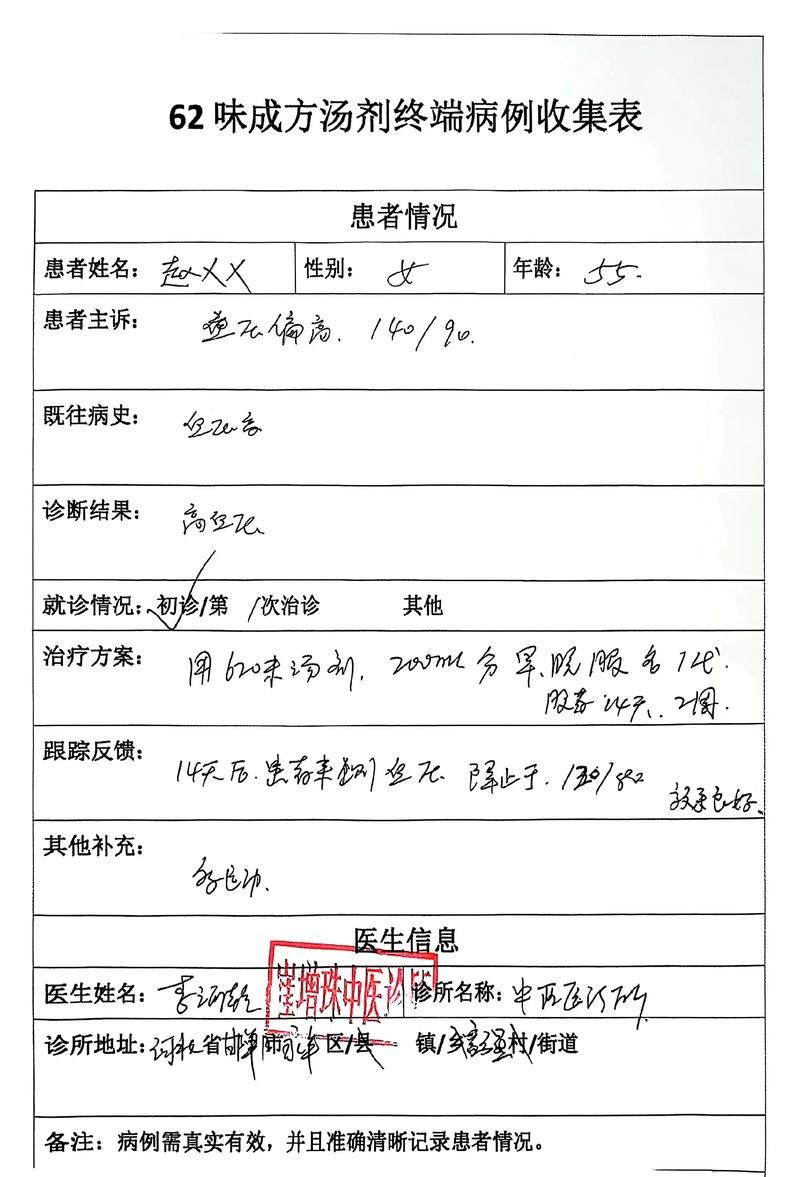 62味成方汤剂终端病例收集表
患者情况
患者姓名：赵XX 性别：女 年龄：55.
患者主诉：血压偏高. 140/90.
既往病史：血压高
诊断结果：高血压.
就诊情况：初诊/第 /次治诊 其他
治疗方案：用62味汤剂. 200ml 分早.晚服各1代.
服药14天、2周.
跟踪反馈：14天后.患者来测血压 降止于.
效果良好.
其他补充：
医生信息
医生姓名：李 诊所名称：中医诊所
崔增珠中医诊所
诊所地址：河北省邯郸市 区/县 镇/乡 村/街道
备注：病例需真实有效，并且准确清晰记录患者情况。